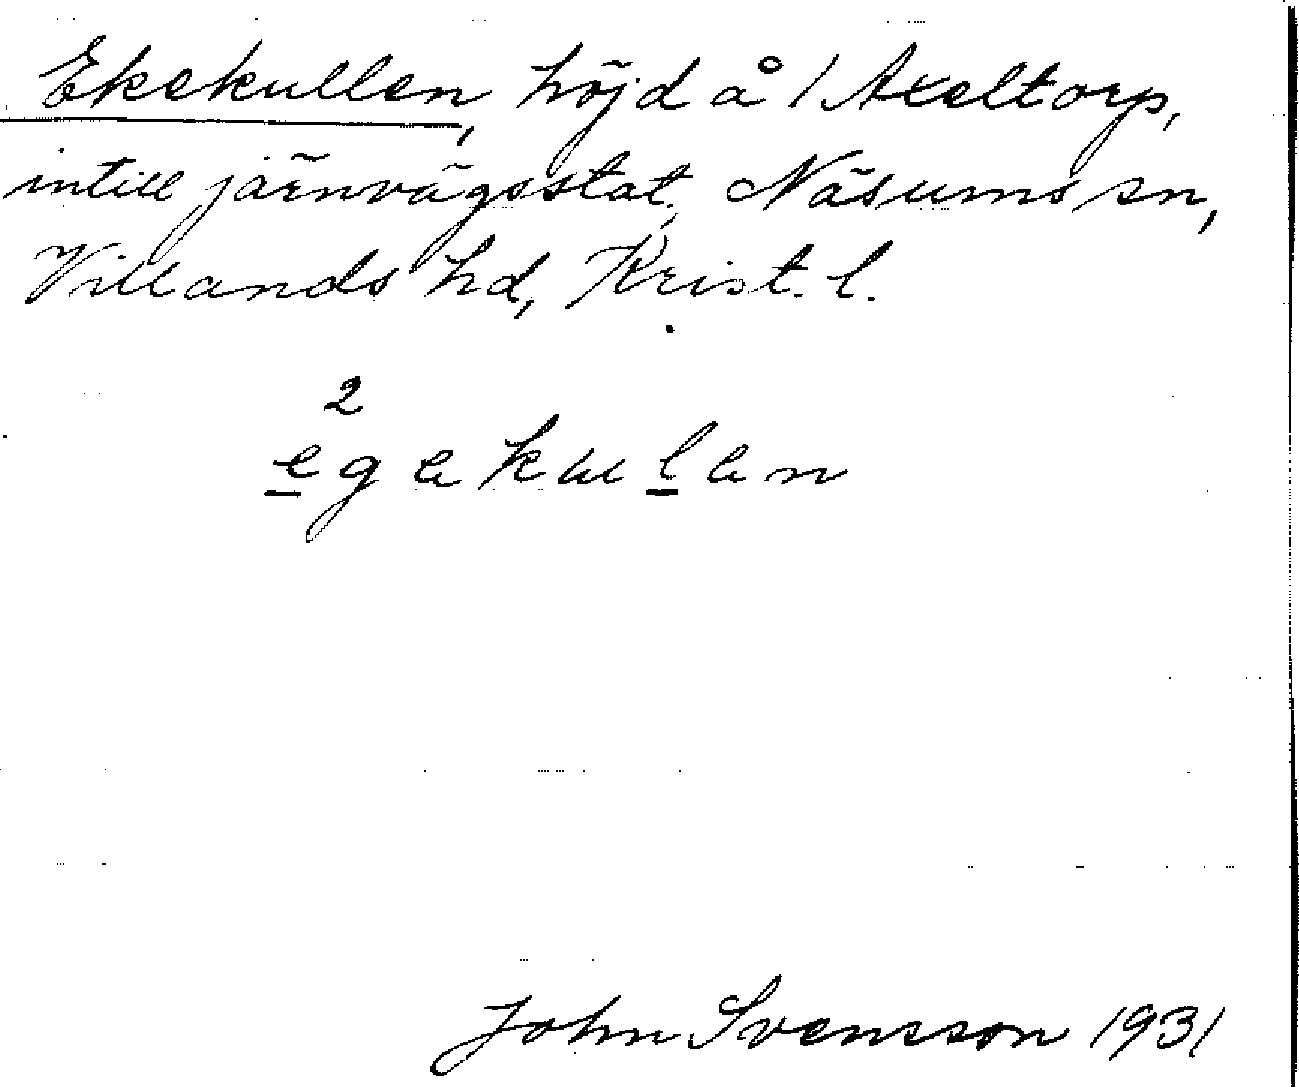 Ekekullen, höjd å 1 Axeltorp,
intill järnvägsstat., Näsums sn,
Villands hd, Krist. l.
2
egekulen
John Svensson 1931